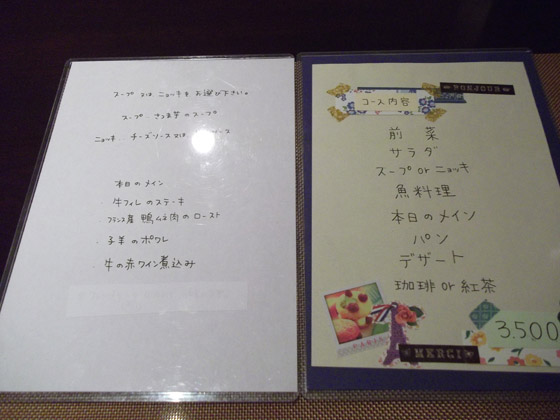 スープ 又は ニョッキを お選び下さい。
スープ . さつま芋のスープ
ニョッキ . チーズソース又は ソース
本日のメイン
牛フィレのステーキ
フランス産 鴨ムネ肉のロースト
子羊のポワレ
牛の赤ワイン煮込み
コース内容
前菜
サラダ
スープ or ニョッキ
魚料理
本日のメイン
パン
デザート
珈琲 or 紅茶
3.500
MERCI